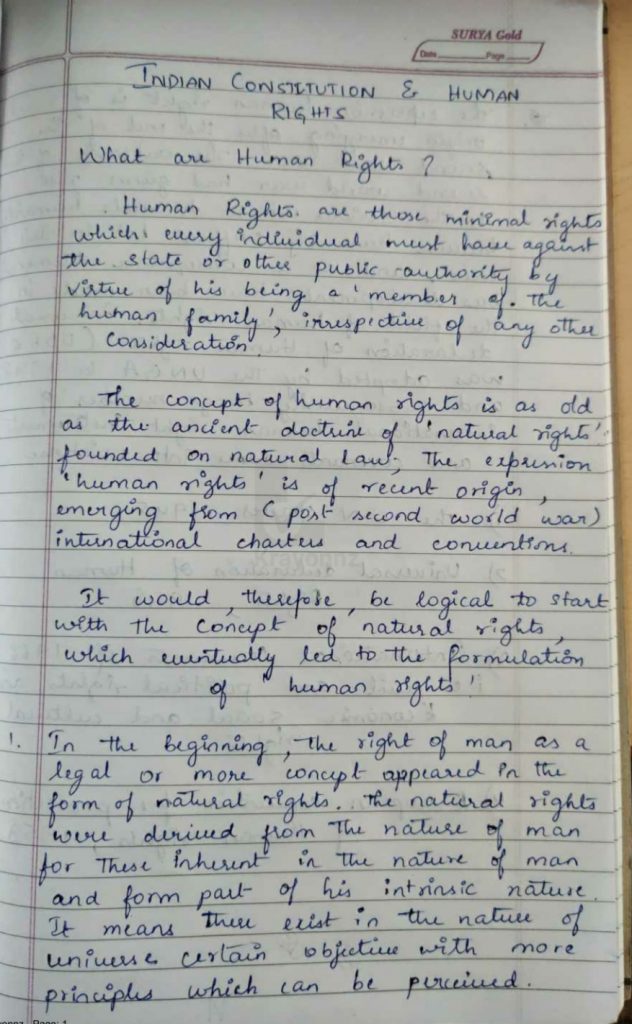 SURYA Gold
Date Page
INDIAN CONSTITUTION & HUMAN
RIGHTS
What are Human Rights ?
Human Rights are those minimal rights
which every individual must have against
the state or other public authority by
virtue of his being a 'member of the
human family', irrespective of any other
consideration.
The concept of human rights is as old
as the ancient doctrine of 'natural rights'
founded on natural law; The expression
'human rights' is of recent origin,
emerging from (post second world war)
international charters and conventions.
It would, therefore, be logical to start
with the concept of natural rights,
which eventually led to the formulation
of 'human rights'
1. In the beginning, the right of man as a
legal or more concept appeared in the
form of natural rights. The natural rights
were derived from the nature of man
for these inherent in the nature of man
and form part of his intrinsic nature.
It means there exist in the nature of
universe certain objective with more
principles which can be perceived.
Page: 1